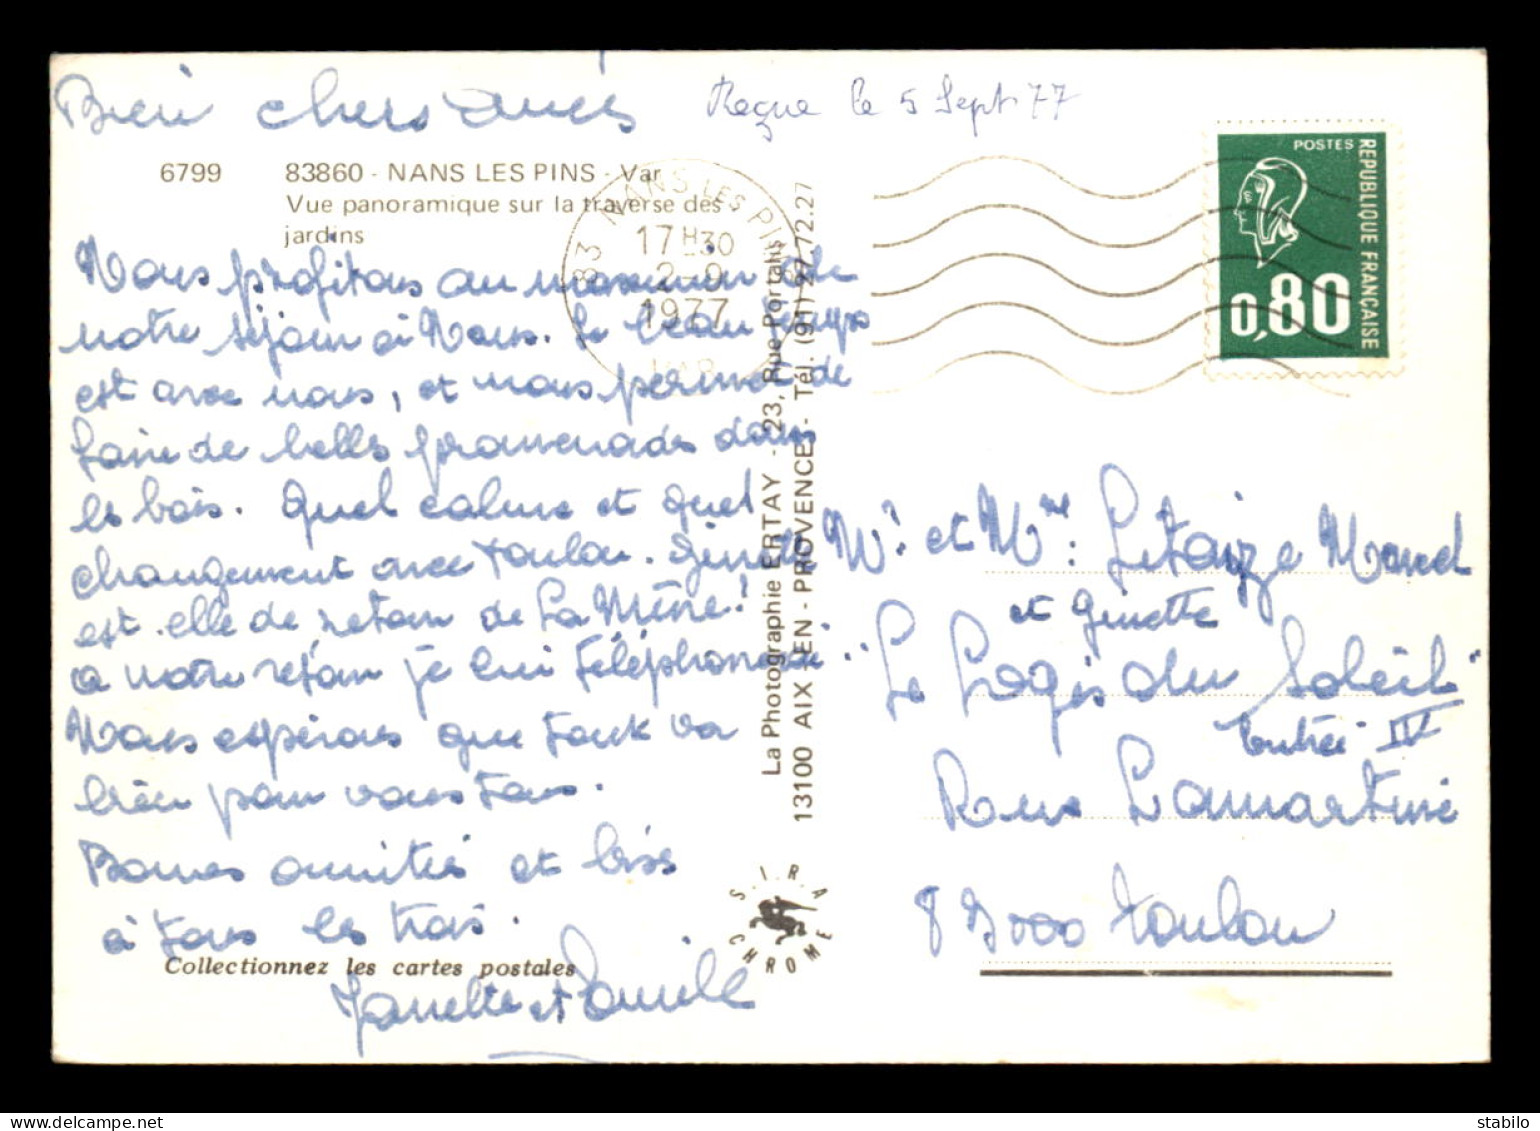 Bien chers amis
Reçue le 5 Sept 77
6799 83860 - NANS LES PINS - Var
Vue panoramique sur la traverse des
jardins
83 NANS LES PINS
17 H 30
2-9
1977
VAR
POSTES
REPUBLIQUE FRANÇAISE
0,80
Nous profitons au maximum de
notre séjour à Nans. Le beau temps
est avec nous, et nous permet de
faire de belles promenades dans
les bois. Quel calme et quel
changement avec Toulon. Ginette
est-elle de retour de La Mûre!
a notre retour je lui téléphonerai..
Nous espérons que tout va
bien pour vous tous.
Bonnes amitiés et bises
à tous les trois.
Collectionnez les cartes postales
La Photographie ERTAY - 23, Rue Portalis
13100 AIX EN - PROVENCE - Tél. (91) 27.72.27
S.I.R.A
CHROME
Mr. et Mme. Letaize Marcel
et Ginette
Le Logis du Soleil"
Entrée IV
Rue Lamartine
83000 Toulon
delcampe.net
stabilo